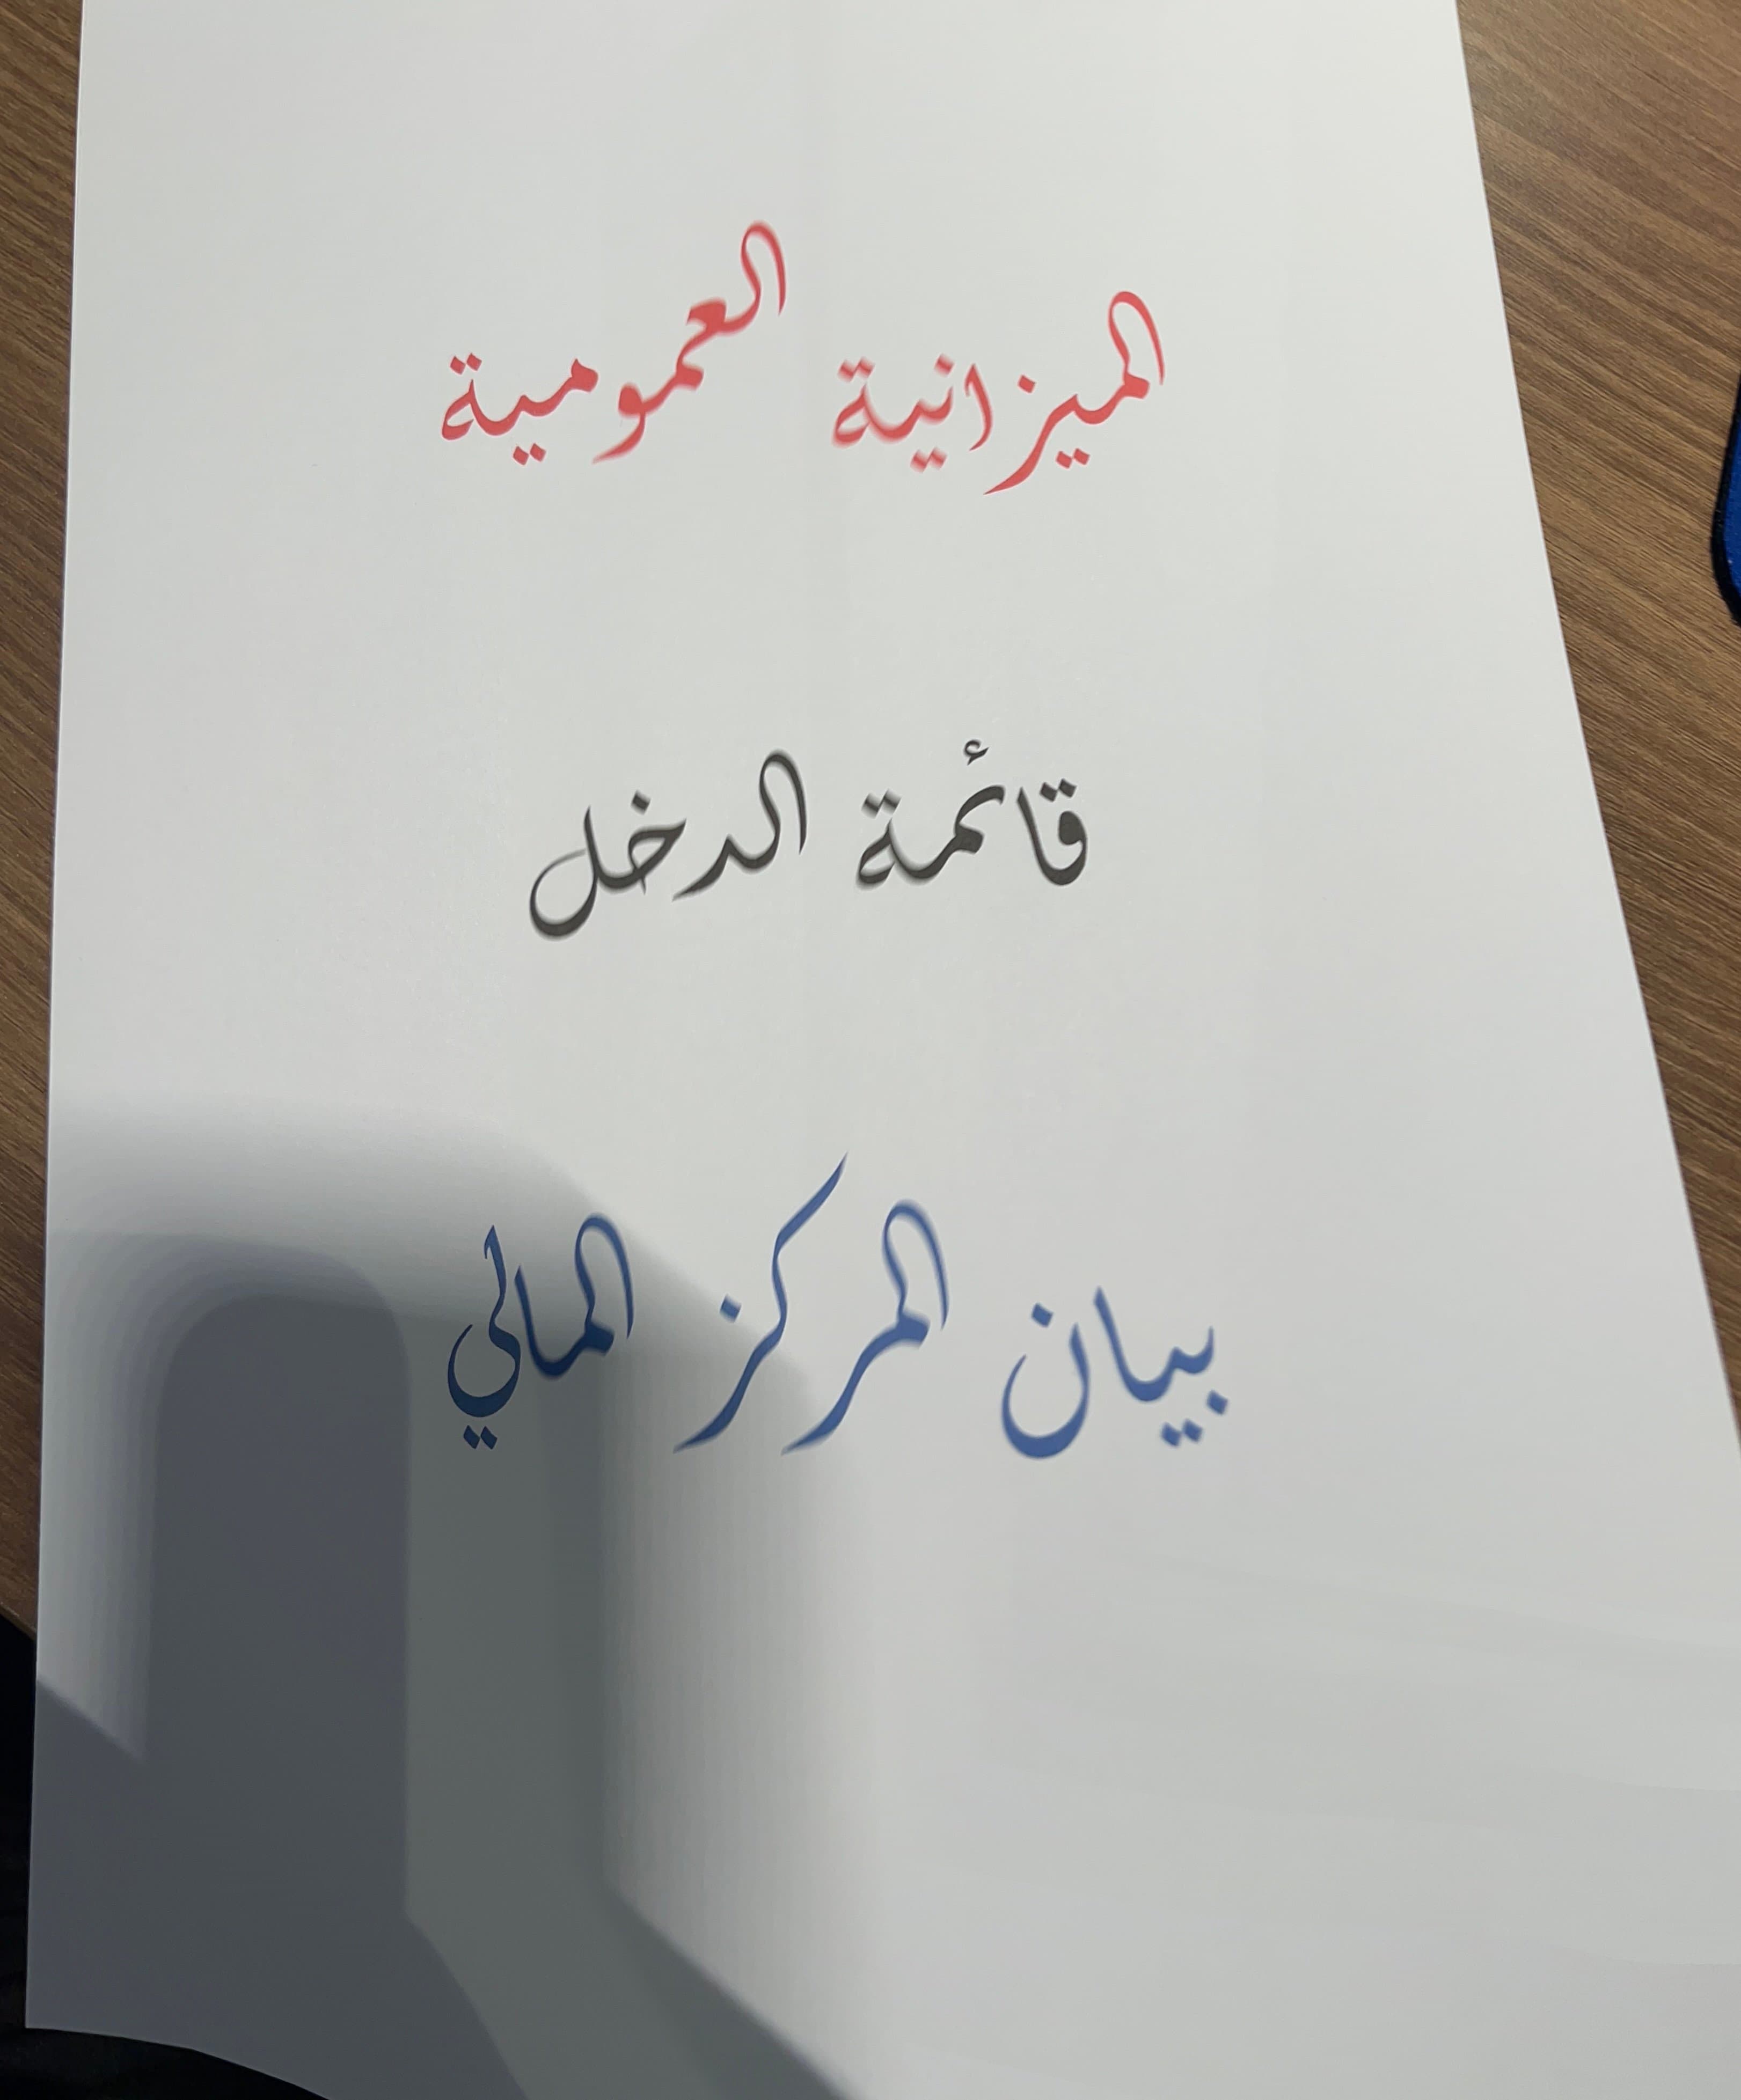 الميزانية العمومية
قائمة الدخل
بيان المركز المالي